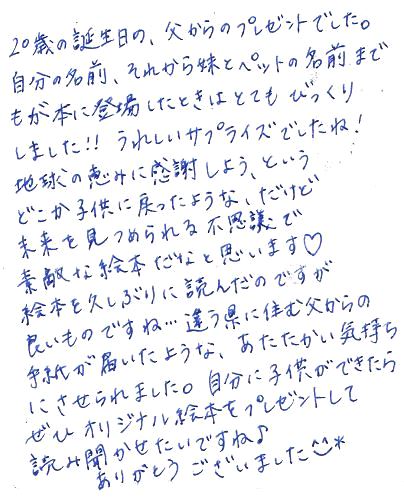 20歳の誕生日の、父からのプレゼントでした。
自分の名前、それから妹とペットの名前まで
もが本に登場したときはとてもびっくり
しました!! うれしいサプライズでしたね!
地球の恵みに感謝しよう、という
どこか子供に戻ったような、だけど
未来を見つめられる不思議で
素敵な絵本だなと思います♡
絵本を久しぶりに読んだのですが
良いものですね…違う県に住む父からの
手紙が届いたような、あたたかい気持ち
にさせられました。自分に子供ができたら
ぜひオリジナル絵本をプレゼントして
読み聞かせたいですね♪
ありがとうございました^^*